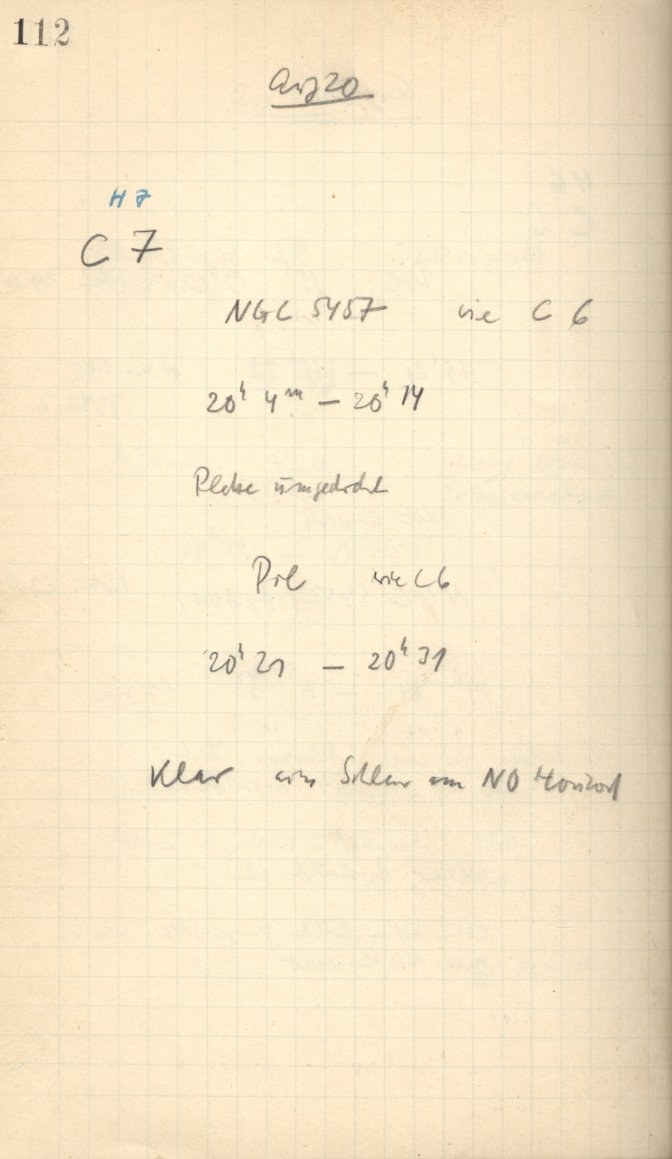 112
Aug 20
H 7
C 7
NGC 5457 wie C 6
20h 4m – 20h 14
Platte umgedreht
Pol wie C6
20h 21 – 20h 31
Klar am NO Horizont